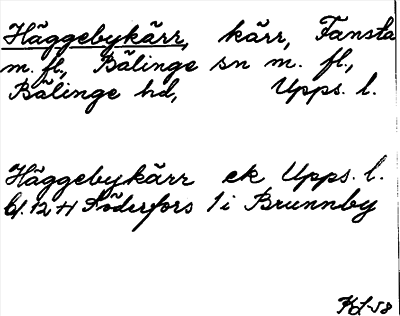 Häggebykärr, kärr, Fansta
m. fl., Bälinge sn m. fl.,
Bälinge hd, Upps. l.
Häggebykärr ek Upps. l.
bl. 12 H Söderfors 1 i Brunnby
KL-58